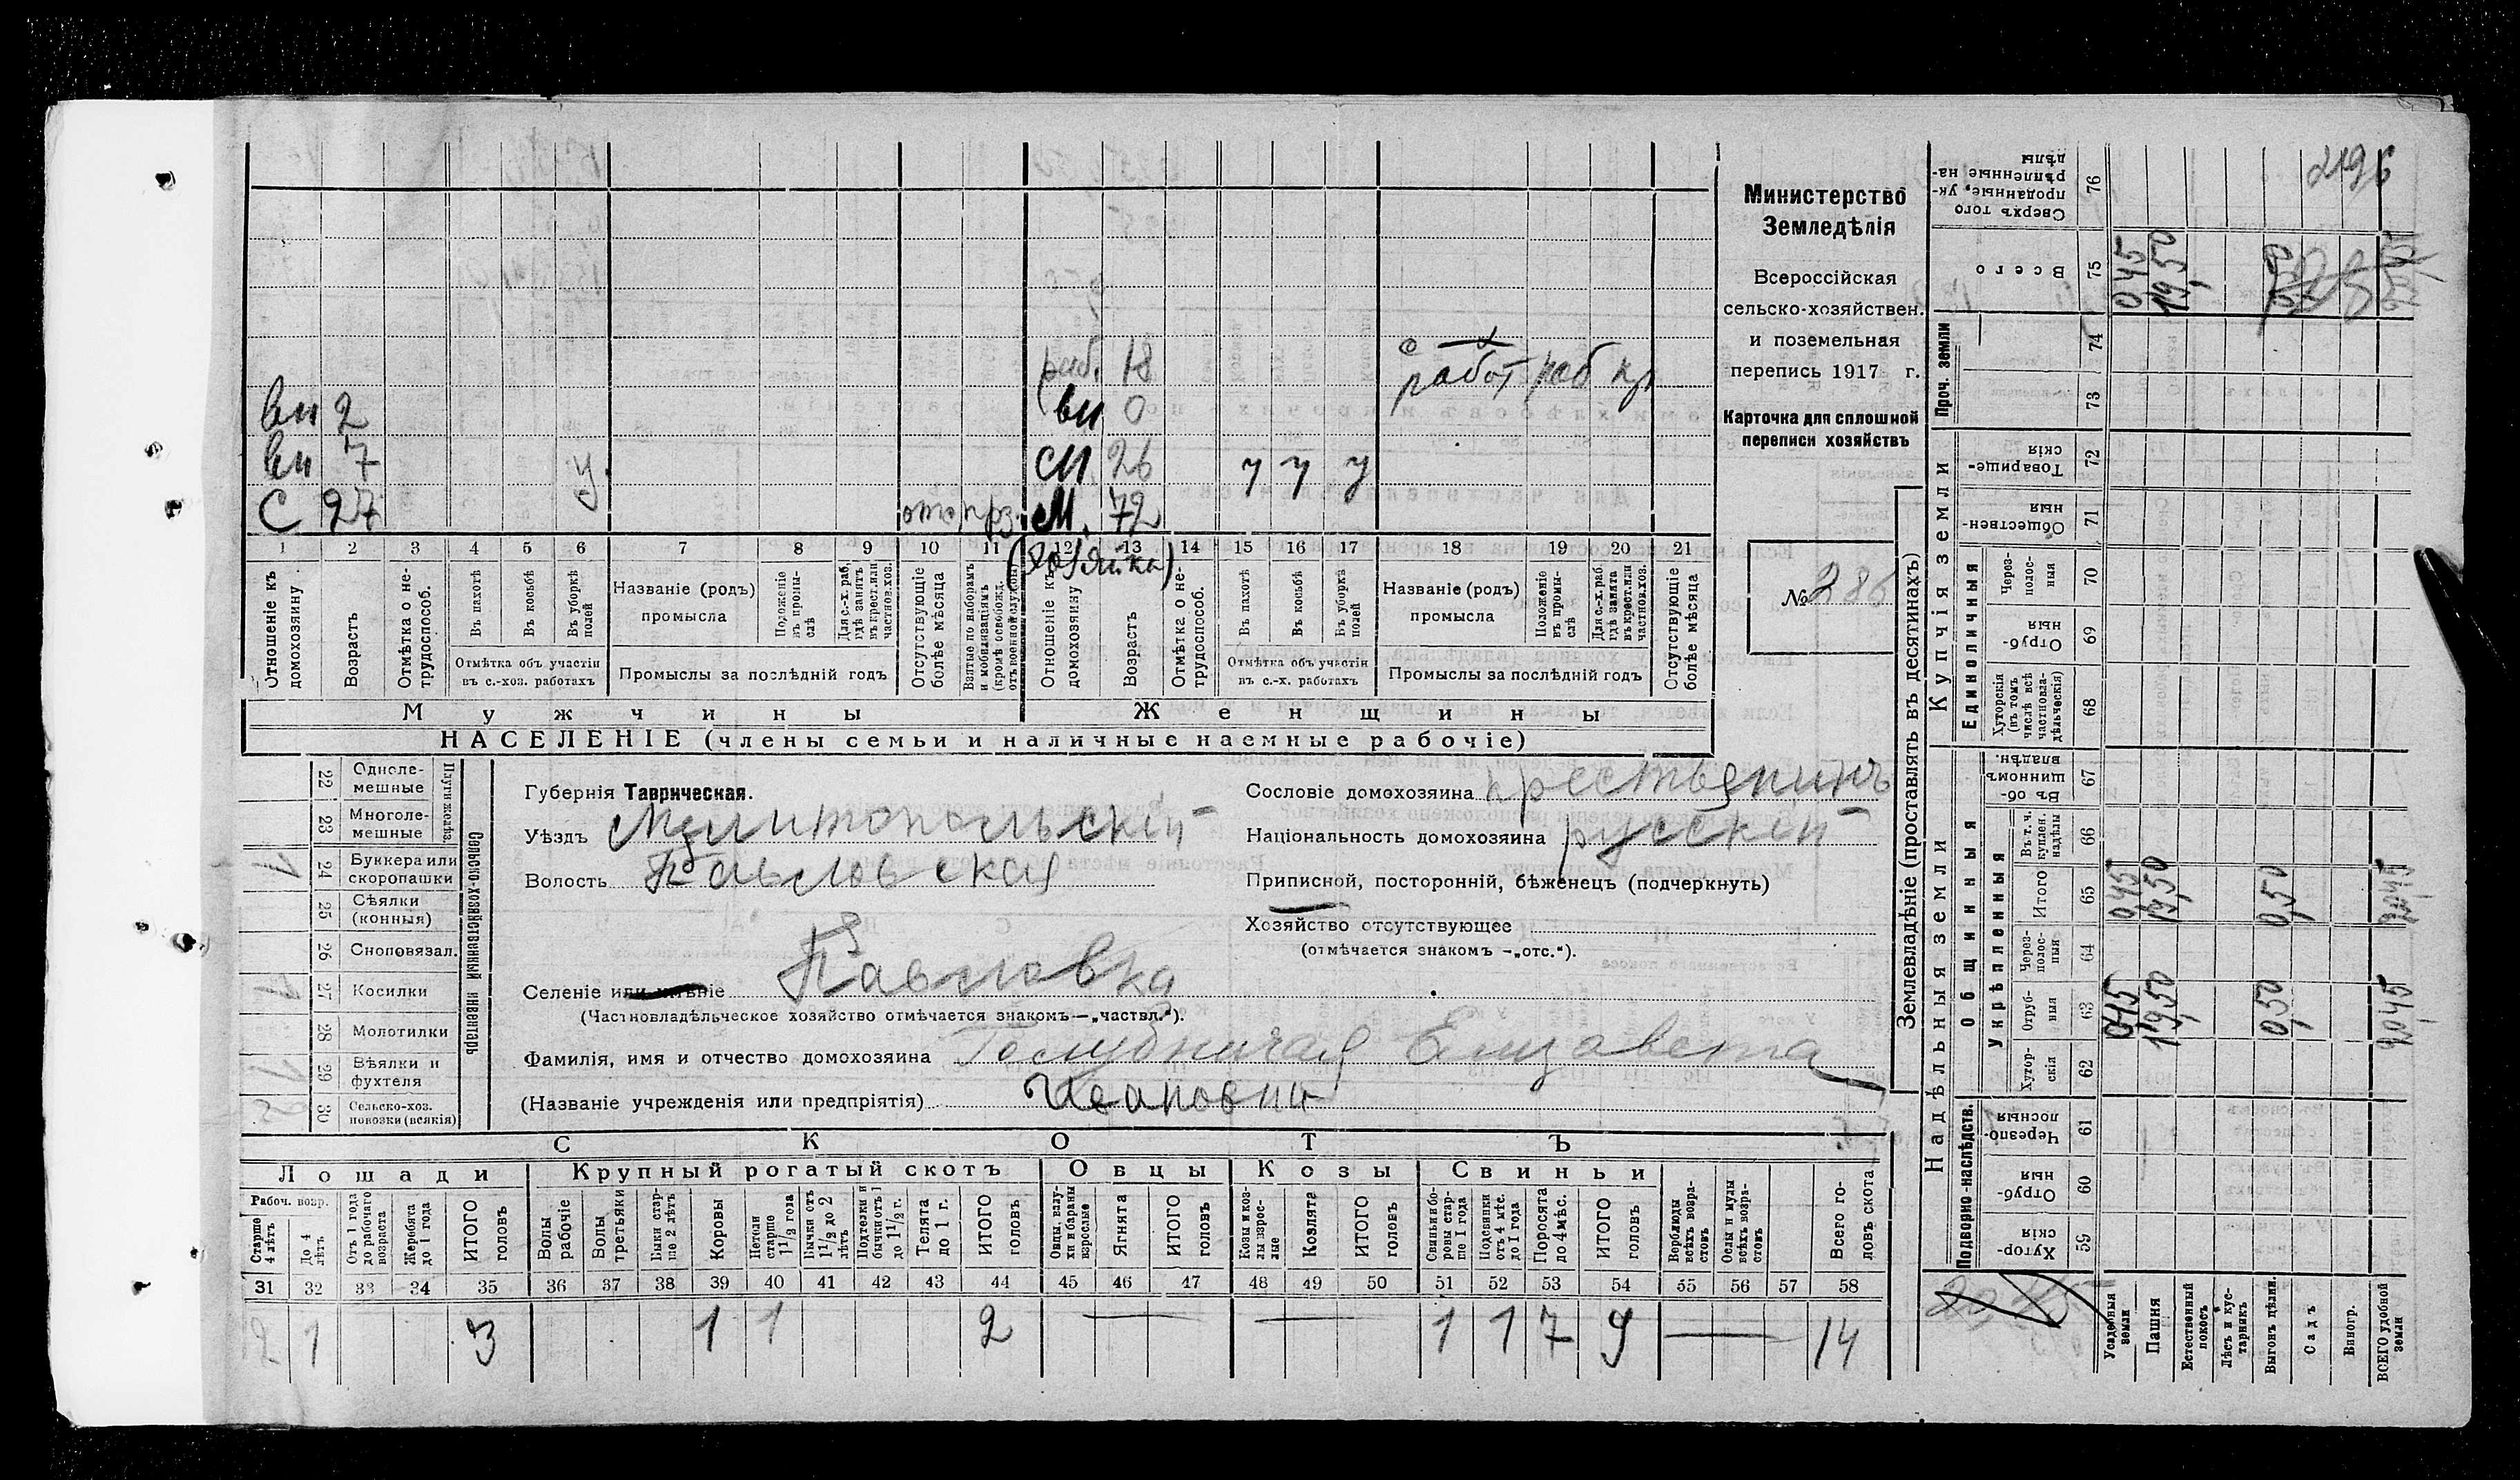 вн 2
вн 7 у.
С 27
раб. 18 работ раб кр
вн 0
сн 26 у у у
М. 72
(хозяйка)
1 2 3 4 5 6 7 8 9 10 11 12 13 14 15 16 17 18 19 20 21
Отношеніе къ домохозяину
Возрастъ
Отмѣтка о не-трудоспособ.
Въ пахотѣ
Въ косьбѣ
Въ уборкѣ полей
Отмѣтка объ участіи
въ с.-хоз. работахъ
Названіе (родъ)
промысла
Положеніе въ промы-слѣ
Для с.-х. раб. гдѣ занятъ въ крест. или частнов. хоз.
Промыслы за послѣдній годъ
Отсутствующіе болѣе мѣсяца
Взятые по наборамъ и мобилизаціямъ (кромѣ освобожд. отъ военной службы)
Отношеніе къ домохозяину
Возрастъ
Отмѣтка о не-трудоспособ.
Въ пахотѣ
Въ косьбѣ
Въ уборкѣ полей
Отмѣтка объ участіи
въ с.-х. работахъ
Названіе (родъ)
промысла
Положеніе въ промы-слѣ
Для с.-х. раб. гдѣ занята въ крест. или частнов. хоз.
Промыслы за послѣдній годъ
Отсутствующіе болѣе мѣсяца
Мужчины Женщины
НАСЕЛЕНІЕ (члены семьи и наличные наемные рабочіе)
Министерство
Земледѣлія
Всероссійская
сельско-хозяйствен.
и поземельная
перепись 1917 г.
Карточка для сплошной
переписи хозяйствъ
№ 286
Сельско-хозяйственный инвентарь
Плуги желѣз.
22 Одноле-мешные
23 Многоле-мешные
24 Буккера или скоропашки 1
25 Сѣялки (конныя)
26 Сноповязал.
27 Косилки 1
28 Молотилки
29 Вѣялки и фухтеля 1
30 Сельско-хоз. повозки (всякія) 2
Губернія Таврическая.
Уѣздъ Мелитопольскій
Волость Павловская
Селеніе или имѣніе Павловка
(Частновладѣльческое хозяйство отмѣчается знакомъ—„частвл.“).
Фамилія, имя и отчество домохозяина Голубничая Елизавета
(Названіе учрежденія или предпріятія) Ивановна
Сословіе домохозяина крестьянинъ
Національность домохозяина русскій
Приписной, посторонній, бѣженецъ (подчеркнуть)
Хозяйство отсутствующее
(отмѣчается знакомъ —„отс.“).
СКОТЪ
Лошади Крупный рогатый скотъ Овцы Козы Свиньи
Рабоч. возр.
Старше 4 лѣтъ
До 4 лѣтъ
Отъ 1 года до рабочаго возраста
Жеребята до 1 года
ИТОГО головъ
Волы рабочіе
Волы третьяки
Быки стар-ше 2 лѣтъ
Коровы
Нетели старше 1 1/2 года
Бычки отъ 1 1/2 до 2 лѣтъ
Подтелки и бычки отъ 1 до 1 1/2 г.
Телята до 1 г.
ИТОГО головъ
Овцы, валу-хи и бараны взрослые
Ягнята
ИТОГО головъ
Козы и коз-лы взрос-лые
Козлята
ИТОГО головъ
Свиньи и бо-ровы стар-ше 1 года
Подсвинки отъ 4 мѣс. до 1 года
Поросята до 4 мѣс.
ИТОГО головъ
Верблюды всѣхъ возра-стовъ
Ослы и мулы всѣхъ возра-стовъ
Всего го-ловъ скота
31 32 33 34 35 36 37 38 39 40 41 42 43 44 45 46 47 48 49 50 51 52 53 54 55 56 57 58
2 1 3 1 1 2 — — 1 1 7 9 — 14
Землевладѣніе (проставлять въ десятинахъ)
Надѣльныя земли
Купчія земли
Проч. земли
Подворно-наслѣдств.
Общинныя
Укрѣпленныя
Единоличныя
Хутор-скія 59
Отруб-ныя 60
Черезпо-лосныя 61
Хутор-скія 62
Отруб-ныя 63
Через-полос-ныя 64
Итого 65
Въ т. ч. куплен. надѣлы 66
Въ об-щинномъ владѣн. 67
Хуторскія (въ томъ числѣ всѣ частновла-дѣльческія) 68
Отруб-ныя 69
Через-полос-ныя 70
Обществен-ныя 71
Товарище-скія 72
73
74
Всего 75
Сверхъ того проданные, ук-рѣпленные на-дѣлы 76
Усадебныя земли 0,45 0,45 0,45
Пашня 19,50 19,50 19,50
Естественный покосъ
Лѣсъ и кус-тарникъ
Выгонъ цѣлин. 0,50 0,50 0,50
Садъ
Виногр.
ВСЕГО удобной земли 20,45 20,45
2196